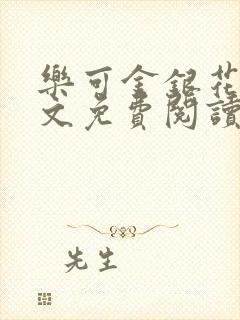 樂可金銀花
文免費閱讀
先生